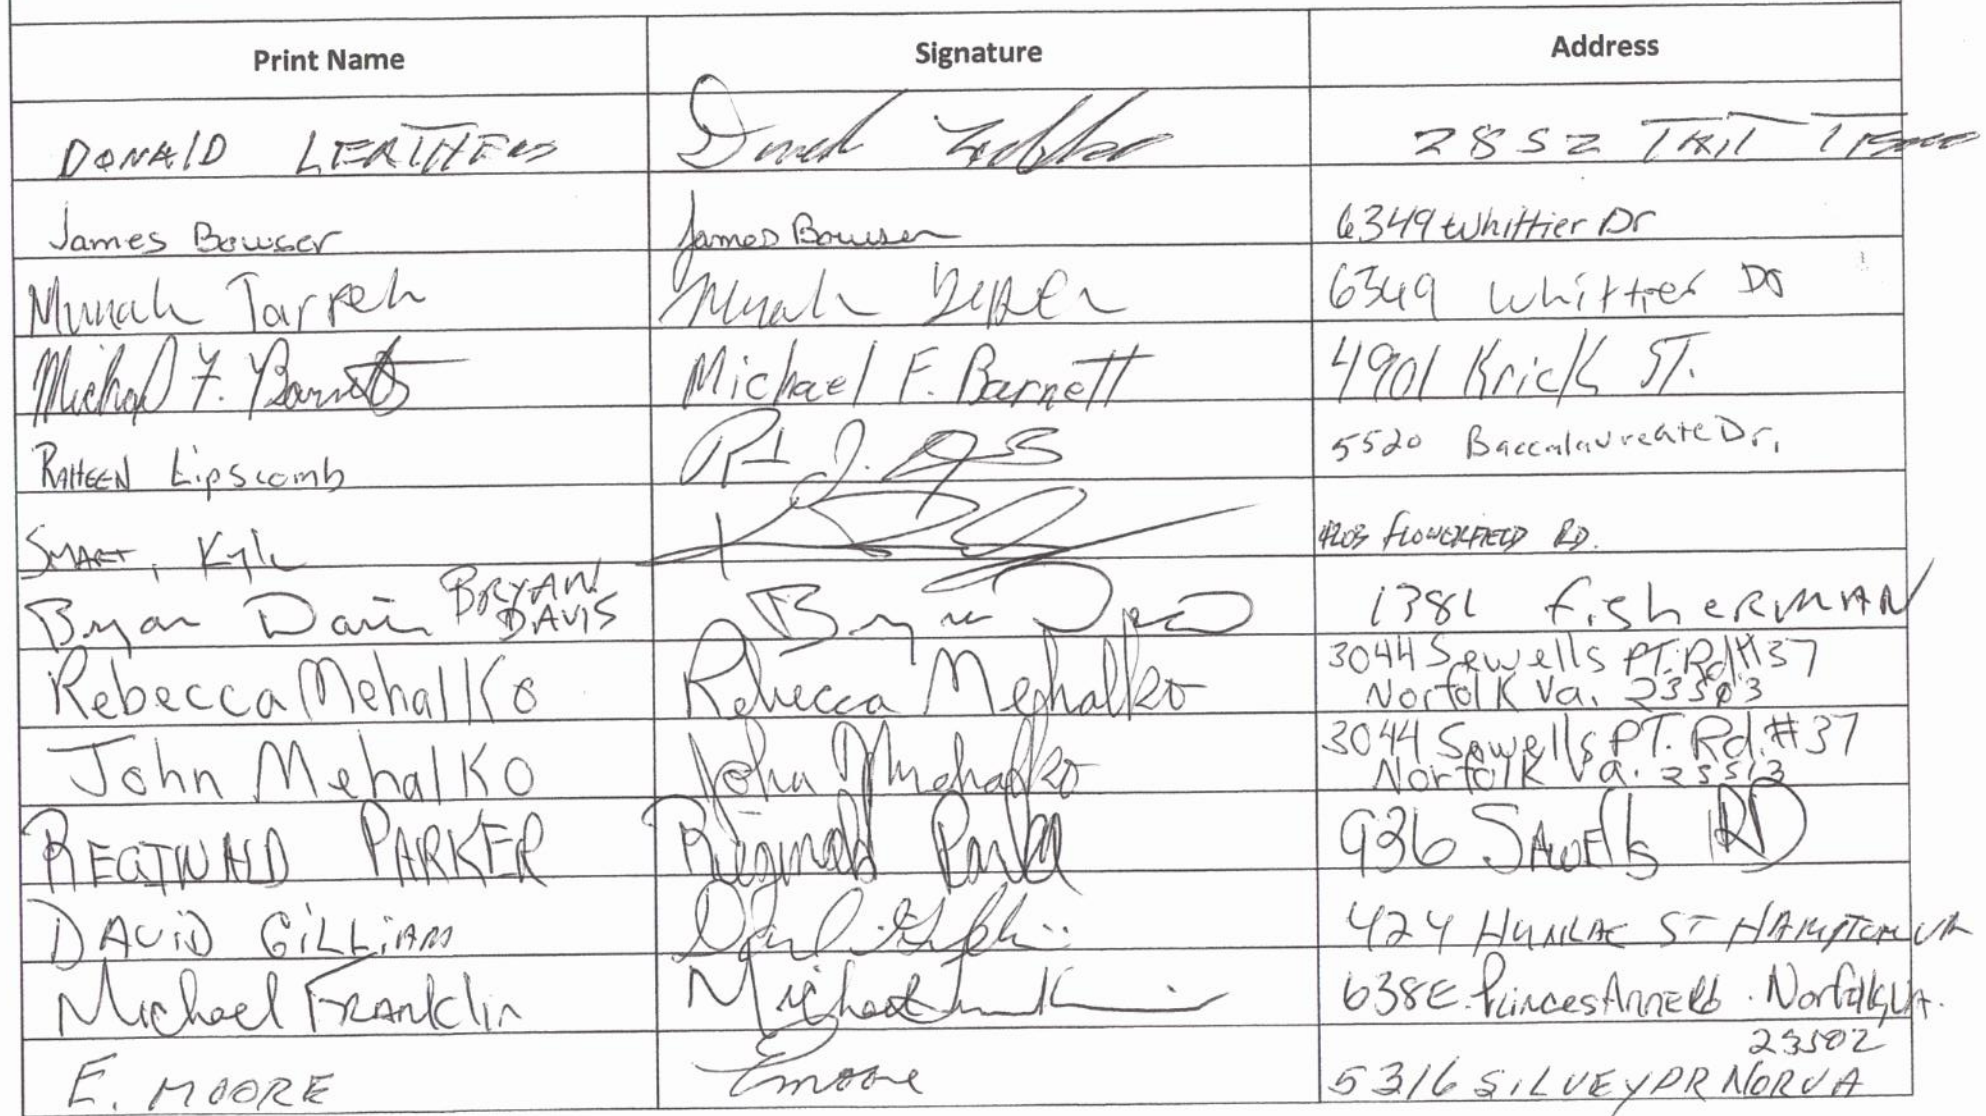 Print Name Signature Address
DONALD LEATHERS 2852
James Bowser James Bowser 6349 Whittier Dr
Munah Tarpeh Munah 6349 Whittier Dr
Michael F. Barnett Michael F. Barnett 4901 Krick ST.
RAHEEN Lipscomb 5520 Baccalaureate Dr.
SMART, Kyle 4203 FLOWERFIELD RD.
Bryan Davis BRYAN DAVIS Bryan 1381 fisherman
Rebecca Mehalko Rebecca Mehalko 3044 Sewells PT. Rd #37
Norfolk Va. 23513
John Mehalko John Mehalko 3044 Sewells PT. Rd. #37
Norfolk Va. 23513
REGINALD PARKER Reginald Parker 936 SAWElls RD
DAVID GILLIAM 424 ST HAMPTON VA
Michael Franklin Michael 638 E. Princes Anne Rd. Norfolk, VA.
23502
E. MOORE Emoore 5316 SILVEY DR NOR VA